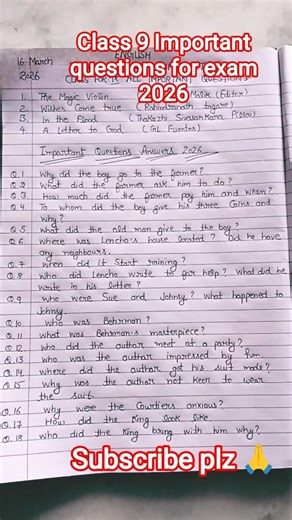 ENGLISH
Class 9 Important
questions for exam
2026
16 March
2026
CLASS FOR IX ALL IMPORTANT QUESTIONS
1. The Magic Violin Malik (Editor)
2. Wishes Come true (Rabindranath tagore)
3. In the Flood (Thakazhi Sivasankara Pillai)
4. A Letter to God (GL Fuentes)
Important Questions Answers 2026
Q.1 Why did the boy go to the farmer?
Q.2 What did the farmer ask him to do?
Q.3 How much did the farmer pay him and when?
Q.4 To whom did the boy give his three Coins and
why?
Q.5 What did the old man give to the boy?
Q.6 where was Lencho's house located? Did he have
any neighbours.
Q.7 when did It Start raining?
Q.8 who did Lencho write to for help? What did he
write in his letter?
Q.9 who were Sue and Johnsy? what happened to
Johnsy.
Q.10 who was Behrman?
Q.11 what was Behrman's masterpiece?
Q.12 who did the author meet at a party?
Q.13 who was the author impressed by him
Q.14 where did the author get his suit made?
Q.15 why was the author not keen to wear
the suit.
Q.16 why were the Courtiers anxious?
Q.17 How did the King look like
Q.18 who did the King bring with him why?
Subscribe plz 🙏